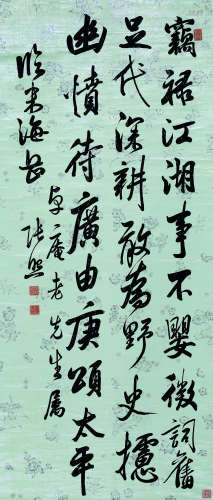 竊祿江湖事不嬰微詞舊
足代深耕敢為野史攄
幽憤待廣由庚頌太平
臨米海岳
卓庵老先生屬
張照